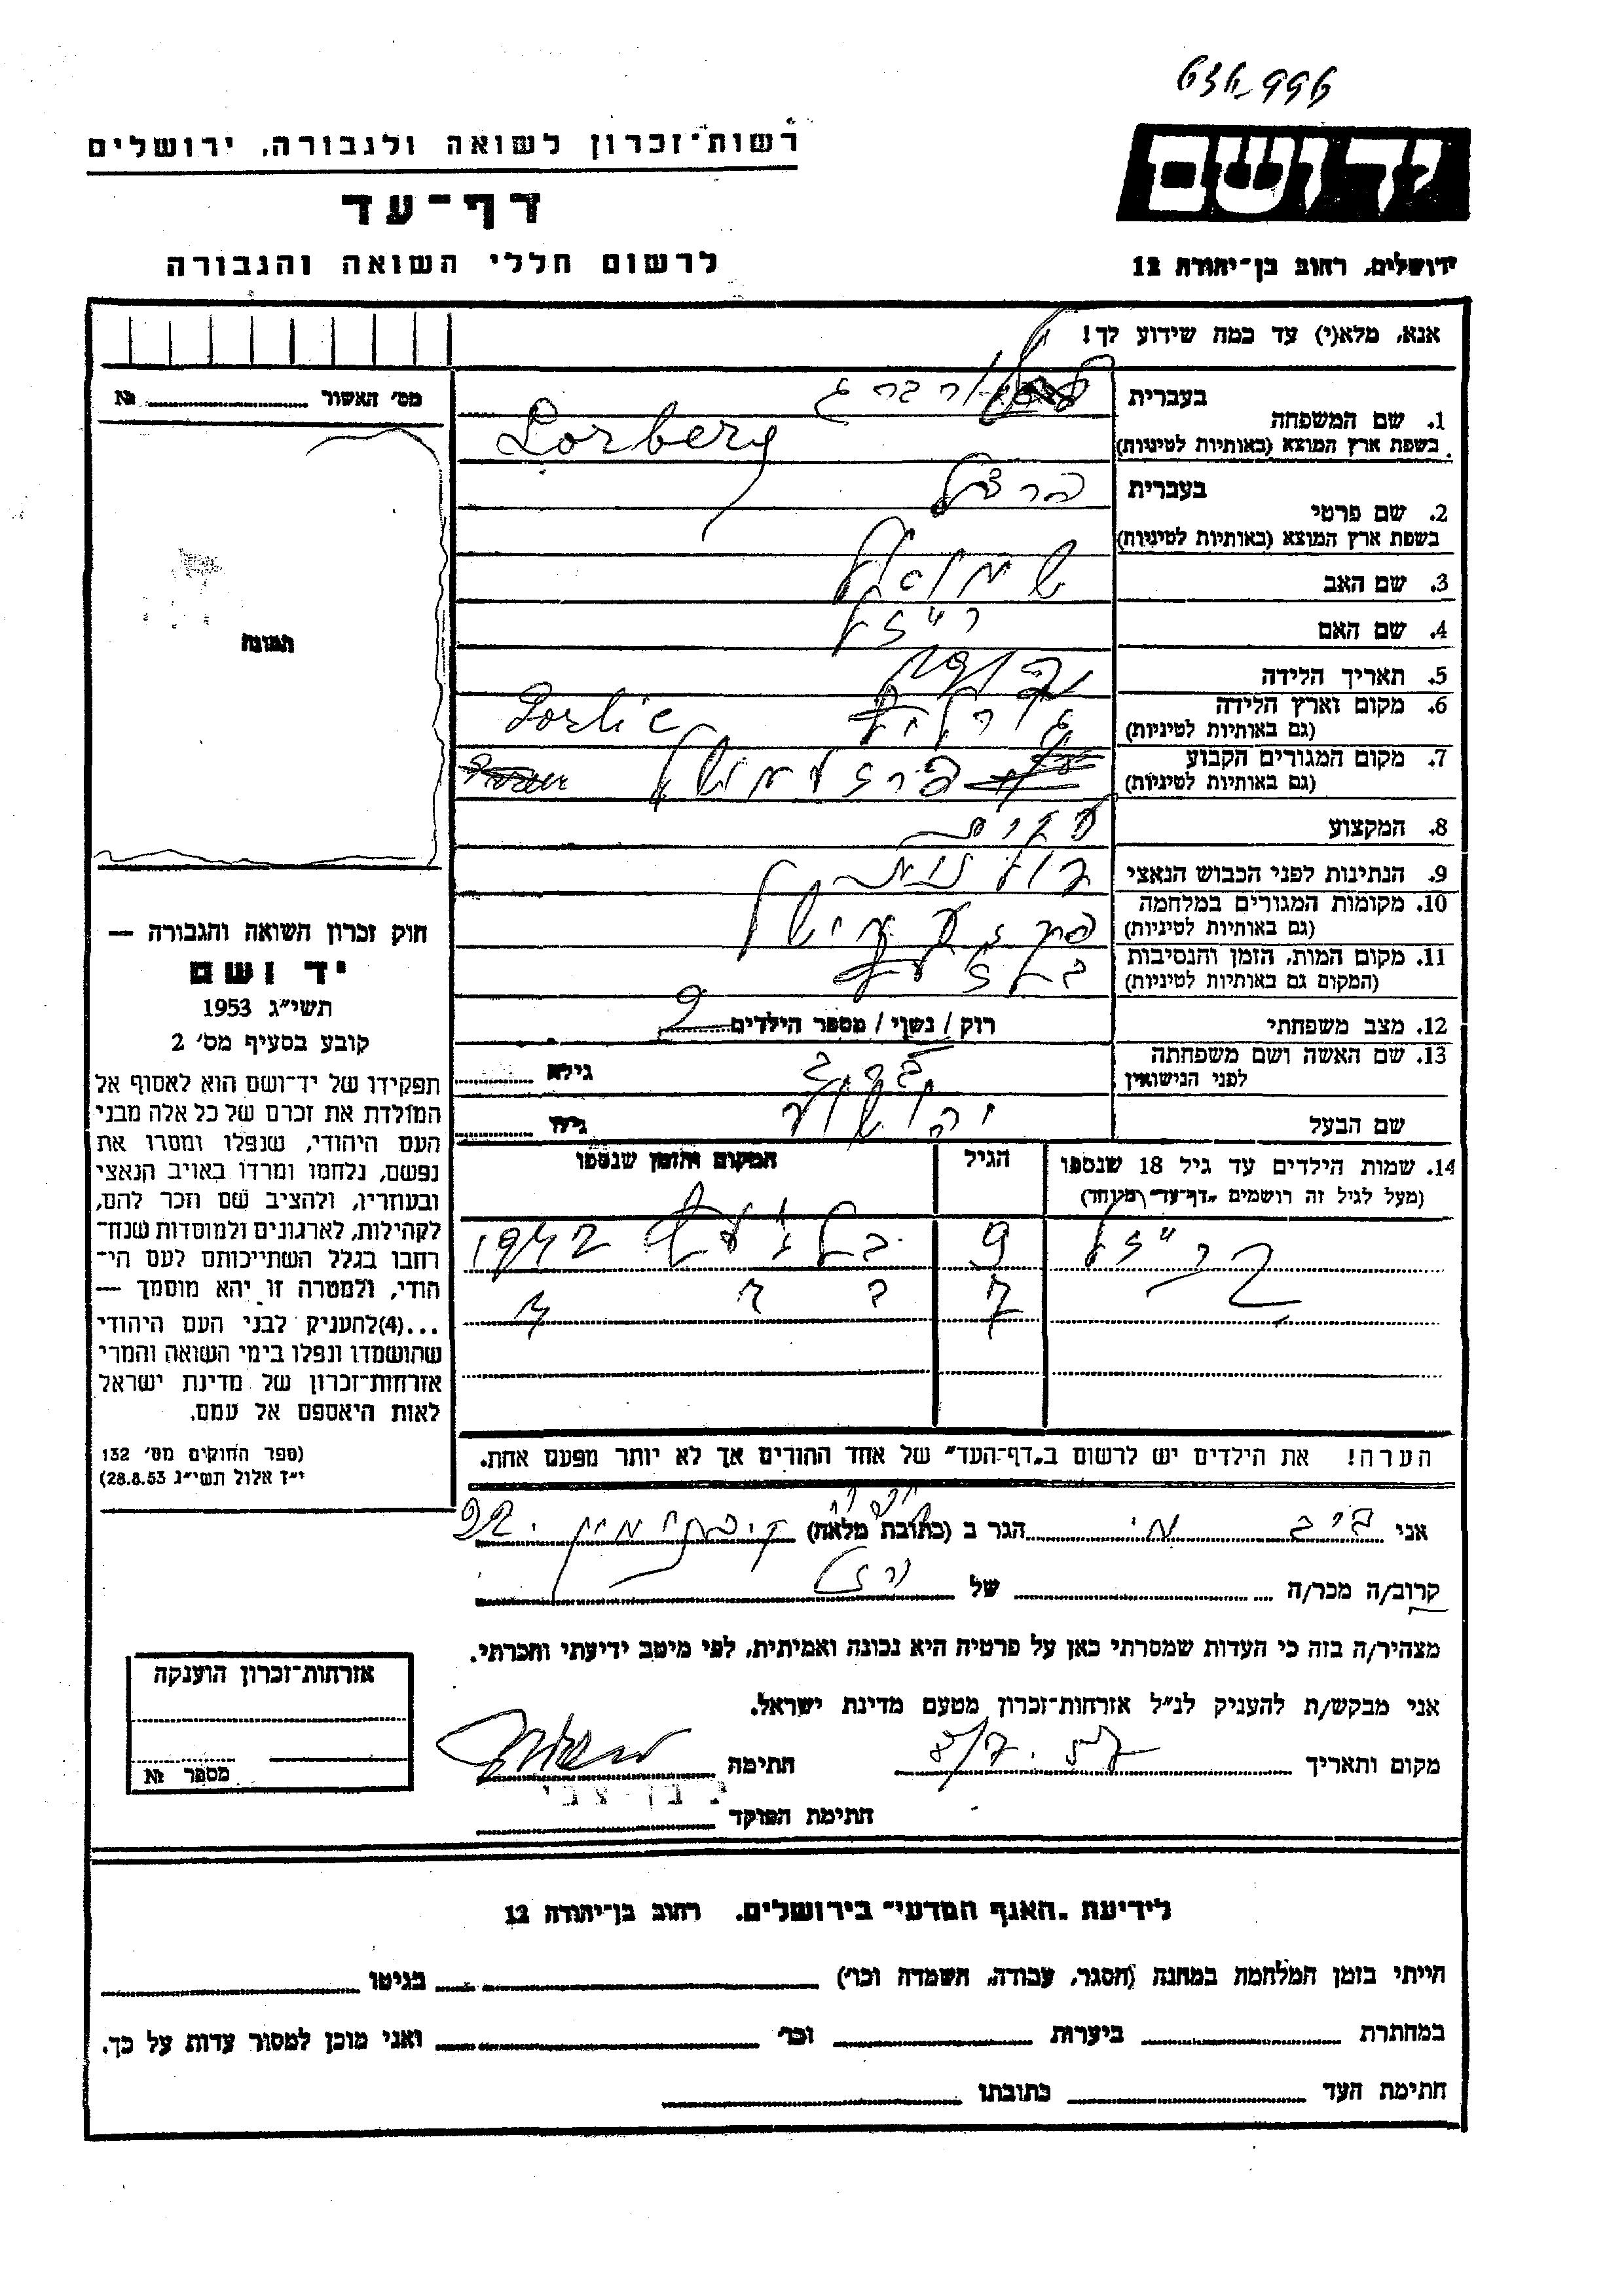 רשות־זכרון לשואה ולגבורה, ירושלים
דף־עד
לרשום חללי השואה והגבורה
יד ושם
ירושלים, רחוב בן־יהודה 12
אנא, מלא(י) עד כמה שידוע לך!
מס׳ האשור № 
1. שם המשפחה
בעברית לורברג
בשפת ארץ המוצא (באותיות לטיניות) Lorberg
2. שם פרטי
בעברית
בשפת ארץ המוצא (באותיות לטיניות)
3. שם האב שמואל
4. שם האם רייזל
5. תאריך הלידה
6. מקום וארץ הלידה גורליץ Gorlic
(גם באותיות לטיניות)
7. מקום המגורים הקבוע פרזעמישל
(גם באותיות לטיניות)
8. המקצוע
9. הנתינות לפני הכבוש הנאצי פולנית
10. מקומות המגורים במלחמה פרזעמישל
(גם באותיות לטיניות)
11. מקום המות, הזמן והנסיבות בלזעץ
(המקום גם באותיות לטיניות)
12. מצב משפחתי רוק / נשוי / מספר הילדים 2
13. שם האשה ושם משפחתה
לפני הנישואין גילה
שם הבעל יהושע גילו
14. שמות הילדים עד גיל 18 שנספו הגיל המקום והזמן שנספו
(מעל לגיל זה רושמים „דף־עד״ מיוחד)
רייזל 9 בלזעץ 1942
7
הערה! את הילדים יש לרשום ב„דף־העד״ של אחד ההורים אך לא יותר מפעם אחת.
תמונה
חוק זכרון השואה והגבורה —
יד ושם
תשי״ג 1953
קובע בסעיף מס׳ 2
תפקידו של יד־ושם הוא לאסוף אל
המולדת את זכרם של כל אלה מבני
העם היהודי, שנפלו ומסרו את
נפשם, נלחמו ומרדו באויב הנאצי
ובעוזריו, ולהציב שם וזכר להם,
לקהילות, לארגונים ולמוסדות שנח־
רחבו בגלל השתייכותם לעם הי־
הודי, ולמטרה זו יהא מוסמך —
...(4)להעניק לבני העם היהודי
שהושמדו ונפלו בימי השואה והמרי
אזרחות־זכרון של מדינת ישראל
לאות היאספם אל עמם.
(ספר החוקים מס׳ 132
י״ד אלול תשי״ג 28.8.53)
אני הגר ב (כתובת מלאה)
קרוב/ה מכר/ה של
מצהיר/ה בזה כי העדות שמסרתי כאן על פרטיה היא נכונה ואמיתית, לפי מיטב ידיעתי והכרתי.
אני מבקש/ת להעניק לנ״ל אזרחות־זכרון מטעם מדינת ישראל.
מקום ותאריך חתימה
י. בן־צבי
חתימת הפוקד
אזרחות־זכרון הוענקה
מספר №
לידיעת „האגף המדעי״ בירושלים, רחוב בן־יהודה 12
הייתי בזמן המלחמה במחנה (הסגר, עבודה, השמדה וכו׳) בגיטו
במחתרת ביערות וכו׳ ואני מוכן למסור עדות על כך.
חתימת העד כתובתו